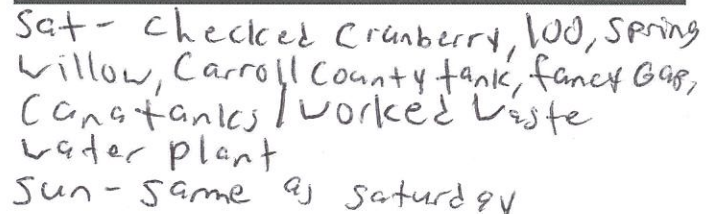 Sat - Checked Cranberry, 100, Spring
Willow, Carroll County tank, fancy Gap,
Cana tanks / Worked Waste
Water plant
Sun - Same as Saturday